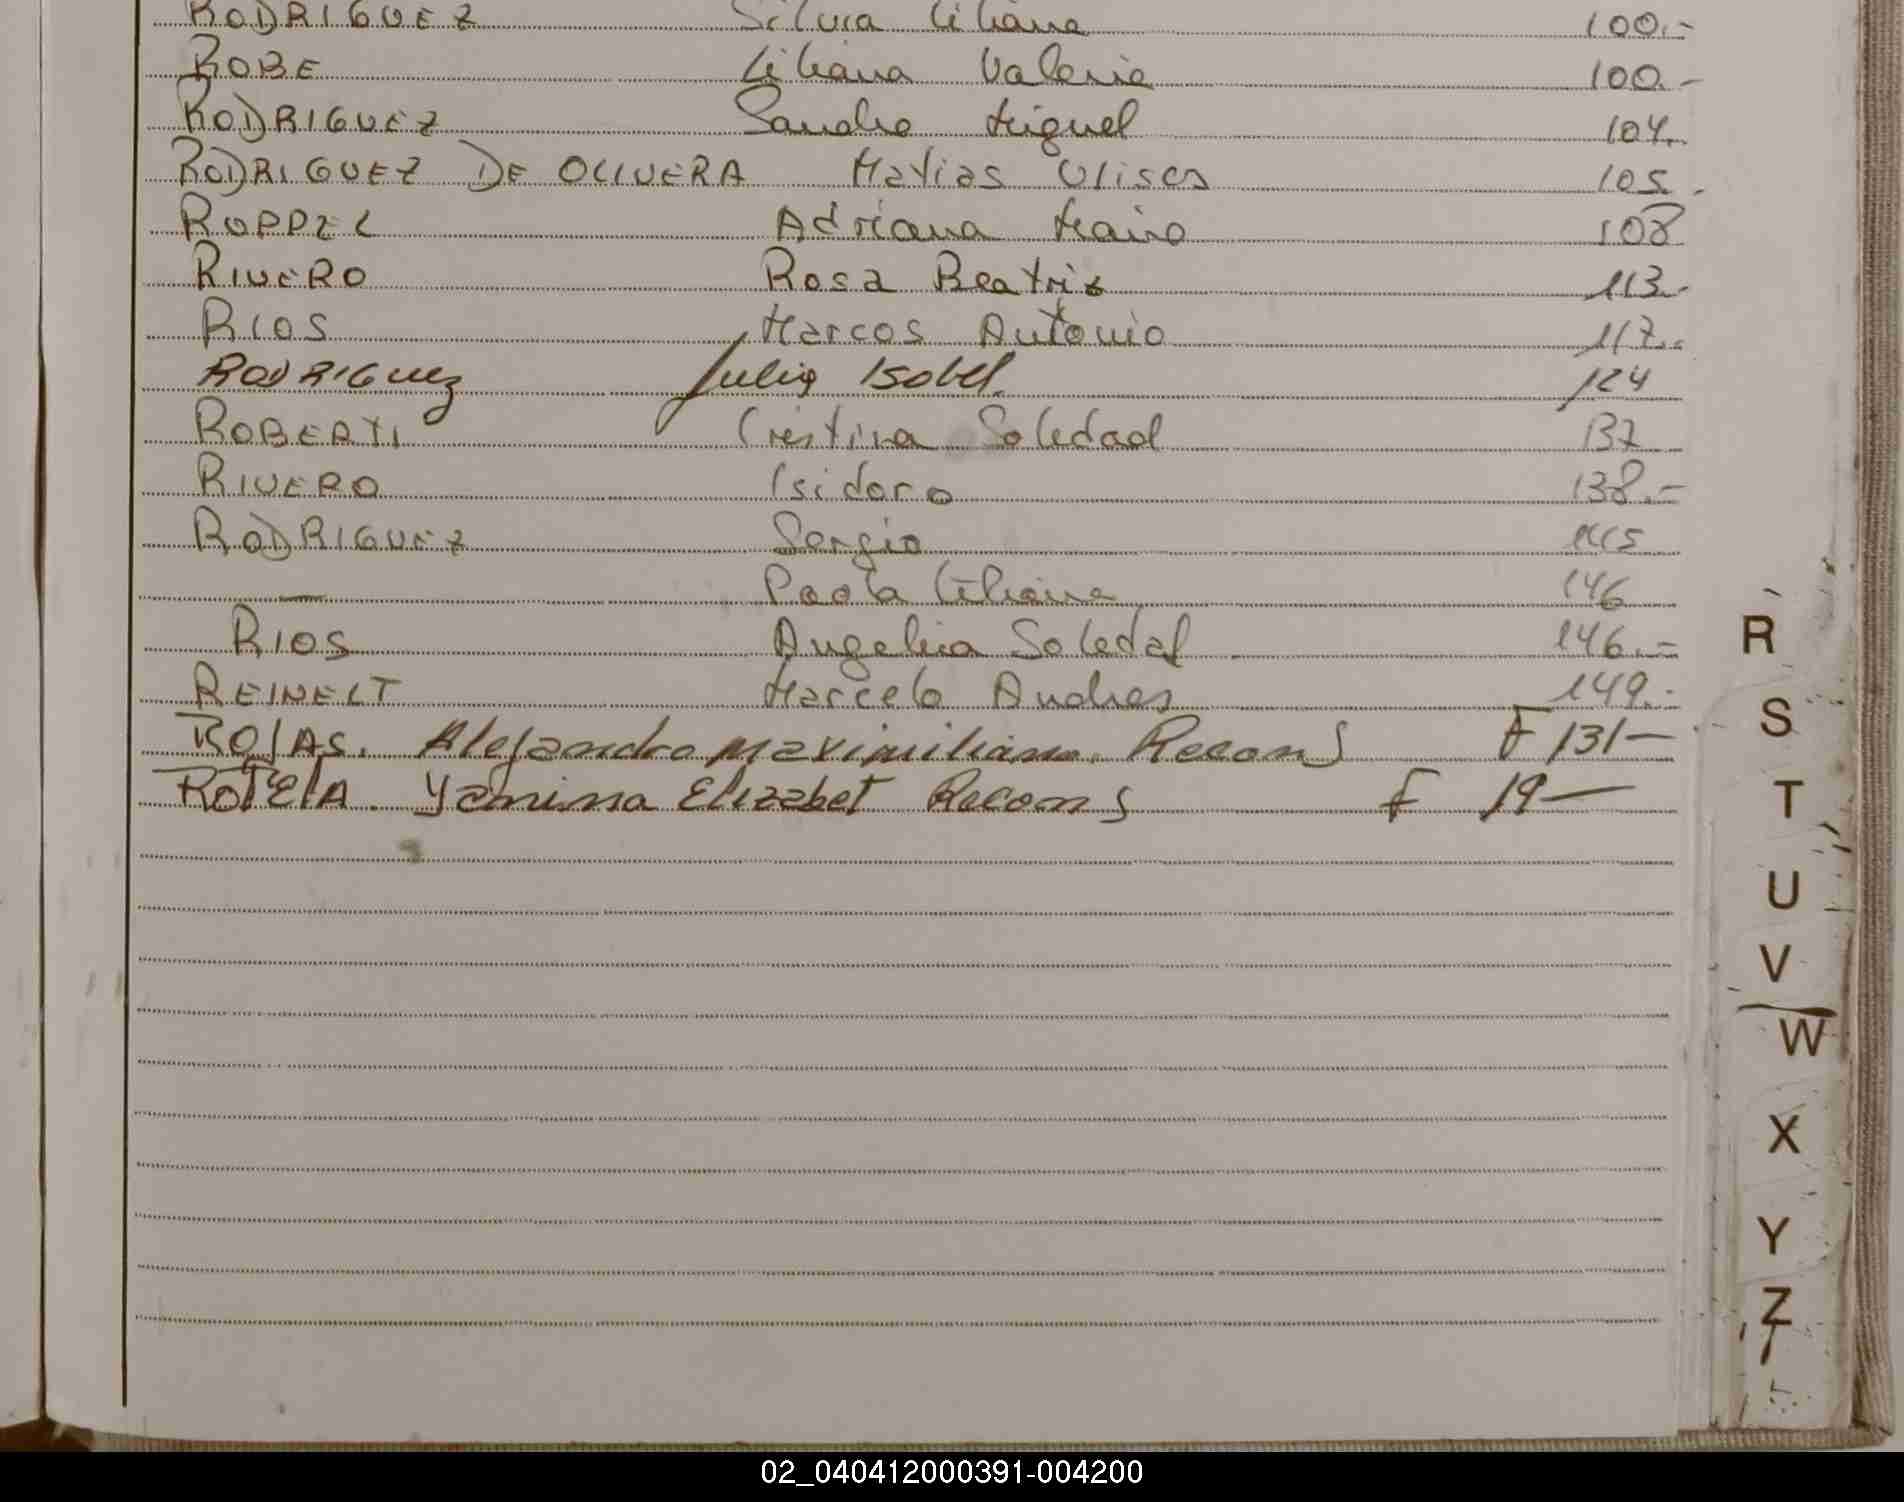 RODRIGUEZ Silvia Liliana 100.-
ROBE Liliana Valeria 100.-
RODRIGUEZ Sandro Miguel 104.
RODRIGUEZ DE OLIVERA Matias Ulises 105.
ROPPEL Adriana Maira 108
RIVERO Rosa Beatriz 113.-
RIOS Marcos Antonio 117..
RODRIGUEZ Julia Isabel. 124
ROBERTI Cristina Soledad 137
RIVERO Isidoro 138.-
RODRIGUEZ Sergio 145
— Paola Liliana 146
RIOS Angelica Soledad 146.-
REINELT Marcelo Andres 149.-
ROJAS. Alejandro Maximiliano. Recons F 131-
ROTELA. Yanina Elizabet Recons F 19-
R
S
T
U
V
W
X
Y
Z
02_040412000391-004200